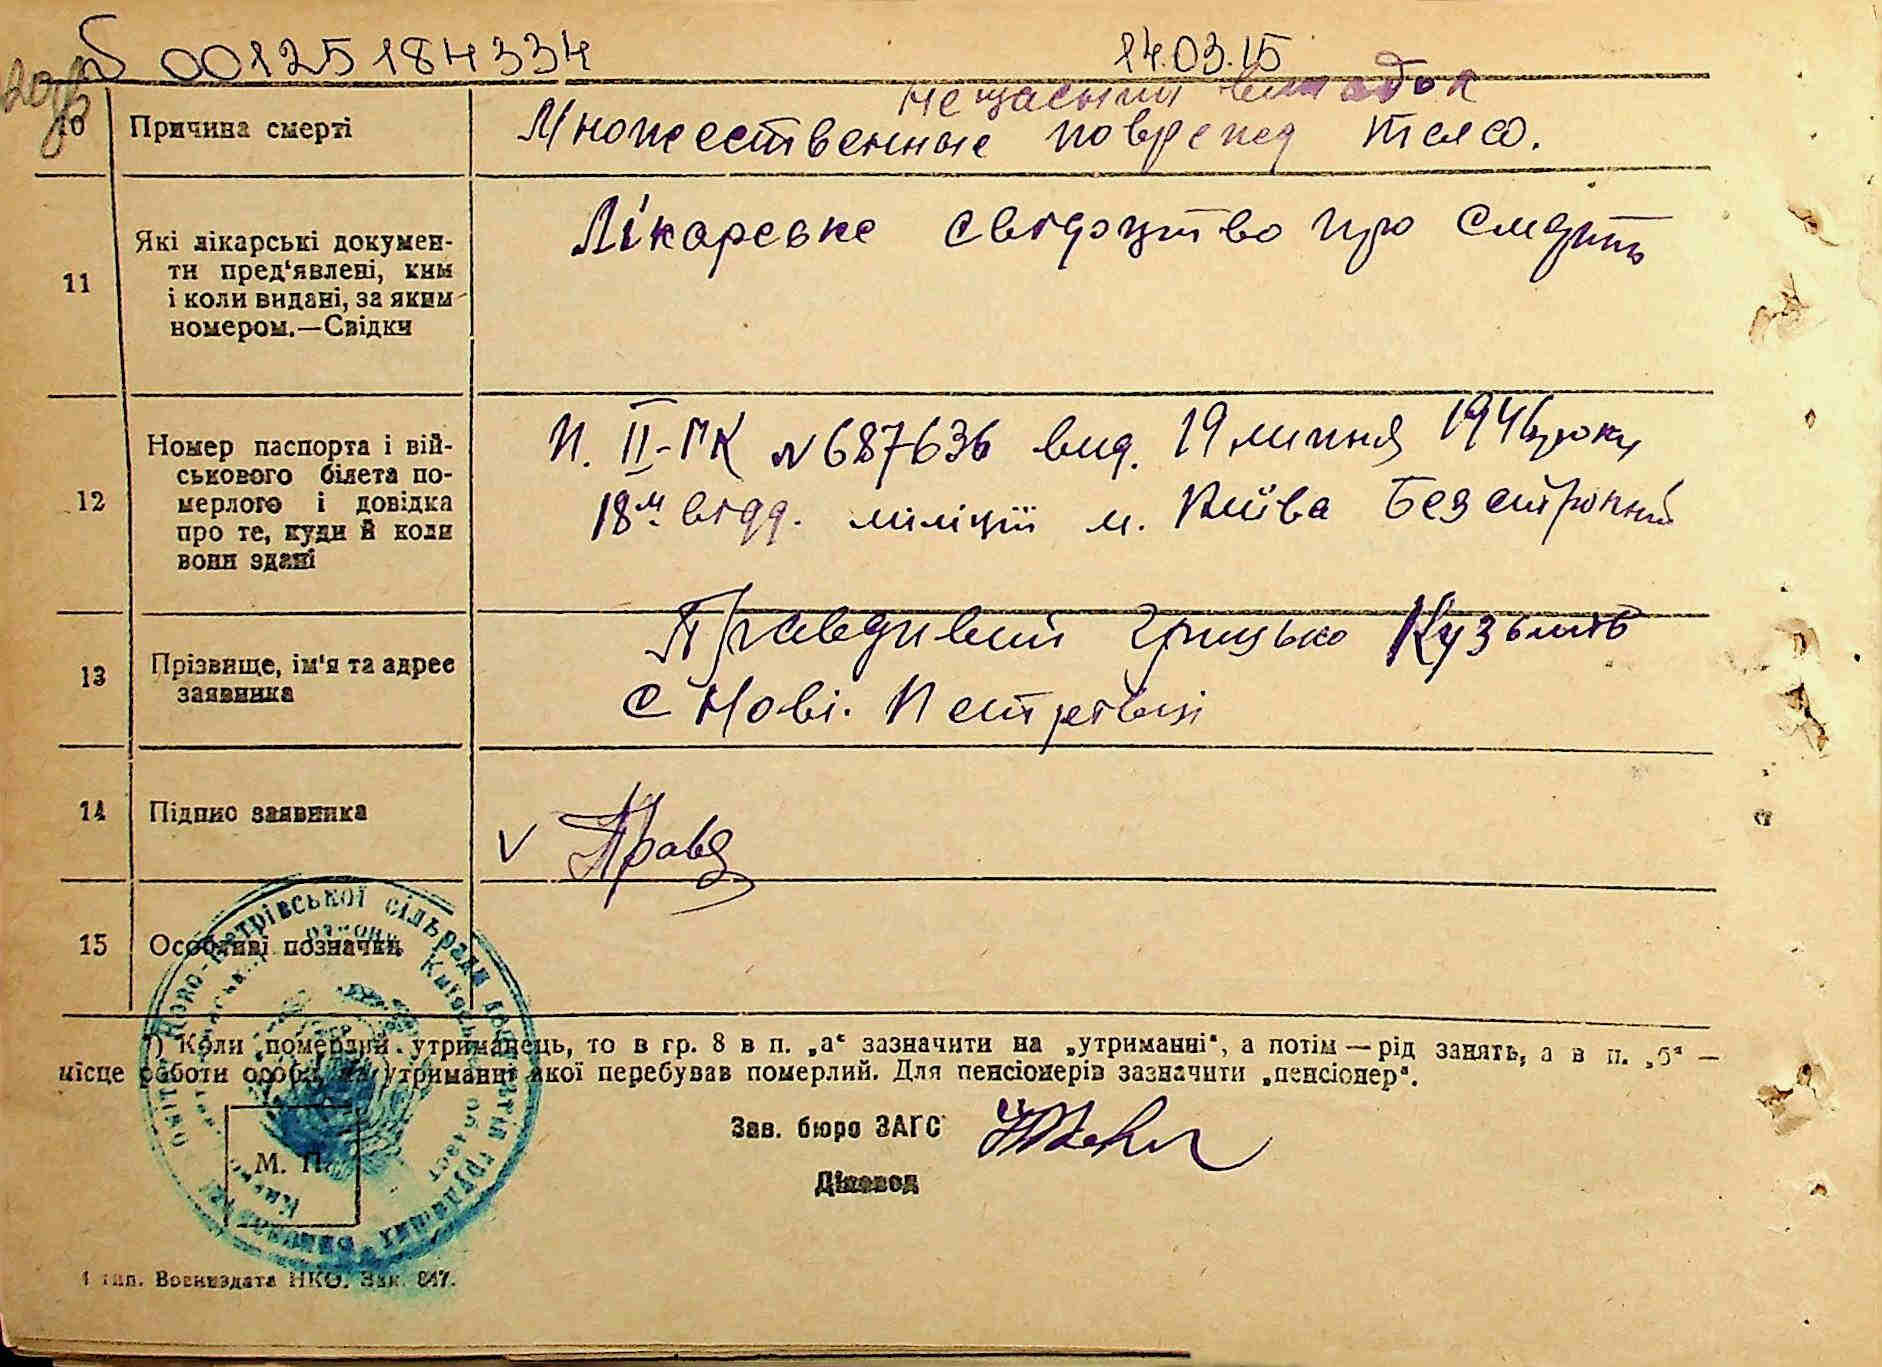 00125184334 14.03.15
нещасний випадок
10 Причина смерті Множественные поврежд тела.
11 Які лікарські докумен-
ти пред'явлені, ким
і коли видані, за яким
номером.—Свідки
Лікарське свідоцтво про смерть
12 Номер паспорта і вій-
ськового білета по-
мерлого і довідка
про те, куди й коли
вони здані
П. II-МК №687636 вид. 19 липня 1946 року
18м відд. міліції м. Київа Безстроковий
13 Прізвище, ім'я та адрес
заявника
Правдивий Грицько Кузьмів
с Нові. Петрівці
14 Підпис заявника V Правд
15 Особливі позначки
¹) Коли „померлий утриманець, то в гр. 8 в п. „а“ зазначити на „утриманні“, а потім — рід занять, а в п. „б“ —
місце работи особи, на утриманні якої перебував померлий. Для пенсіонерів зазначити „пенсіонер“.
Зав. бюро ЗАГС
Діловод
М. П.
Ново-Петрівської сільради депутатів трудящих
району Київської област
1 тип. Воениздата НКО. Зак. 847.